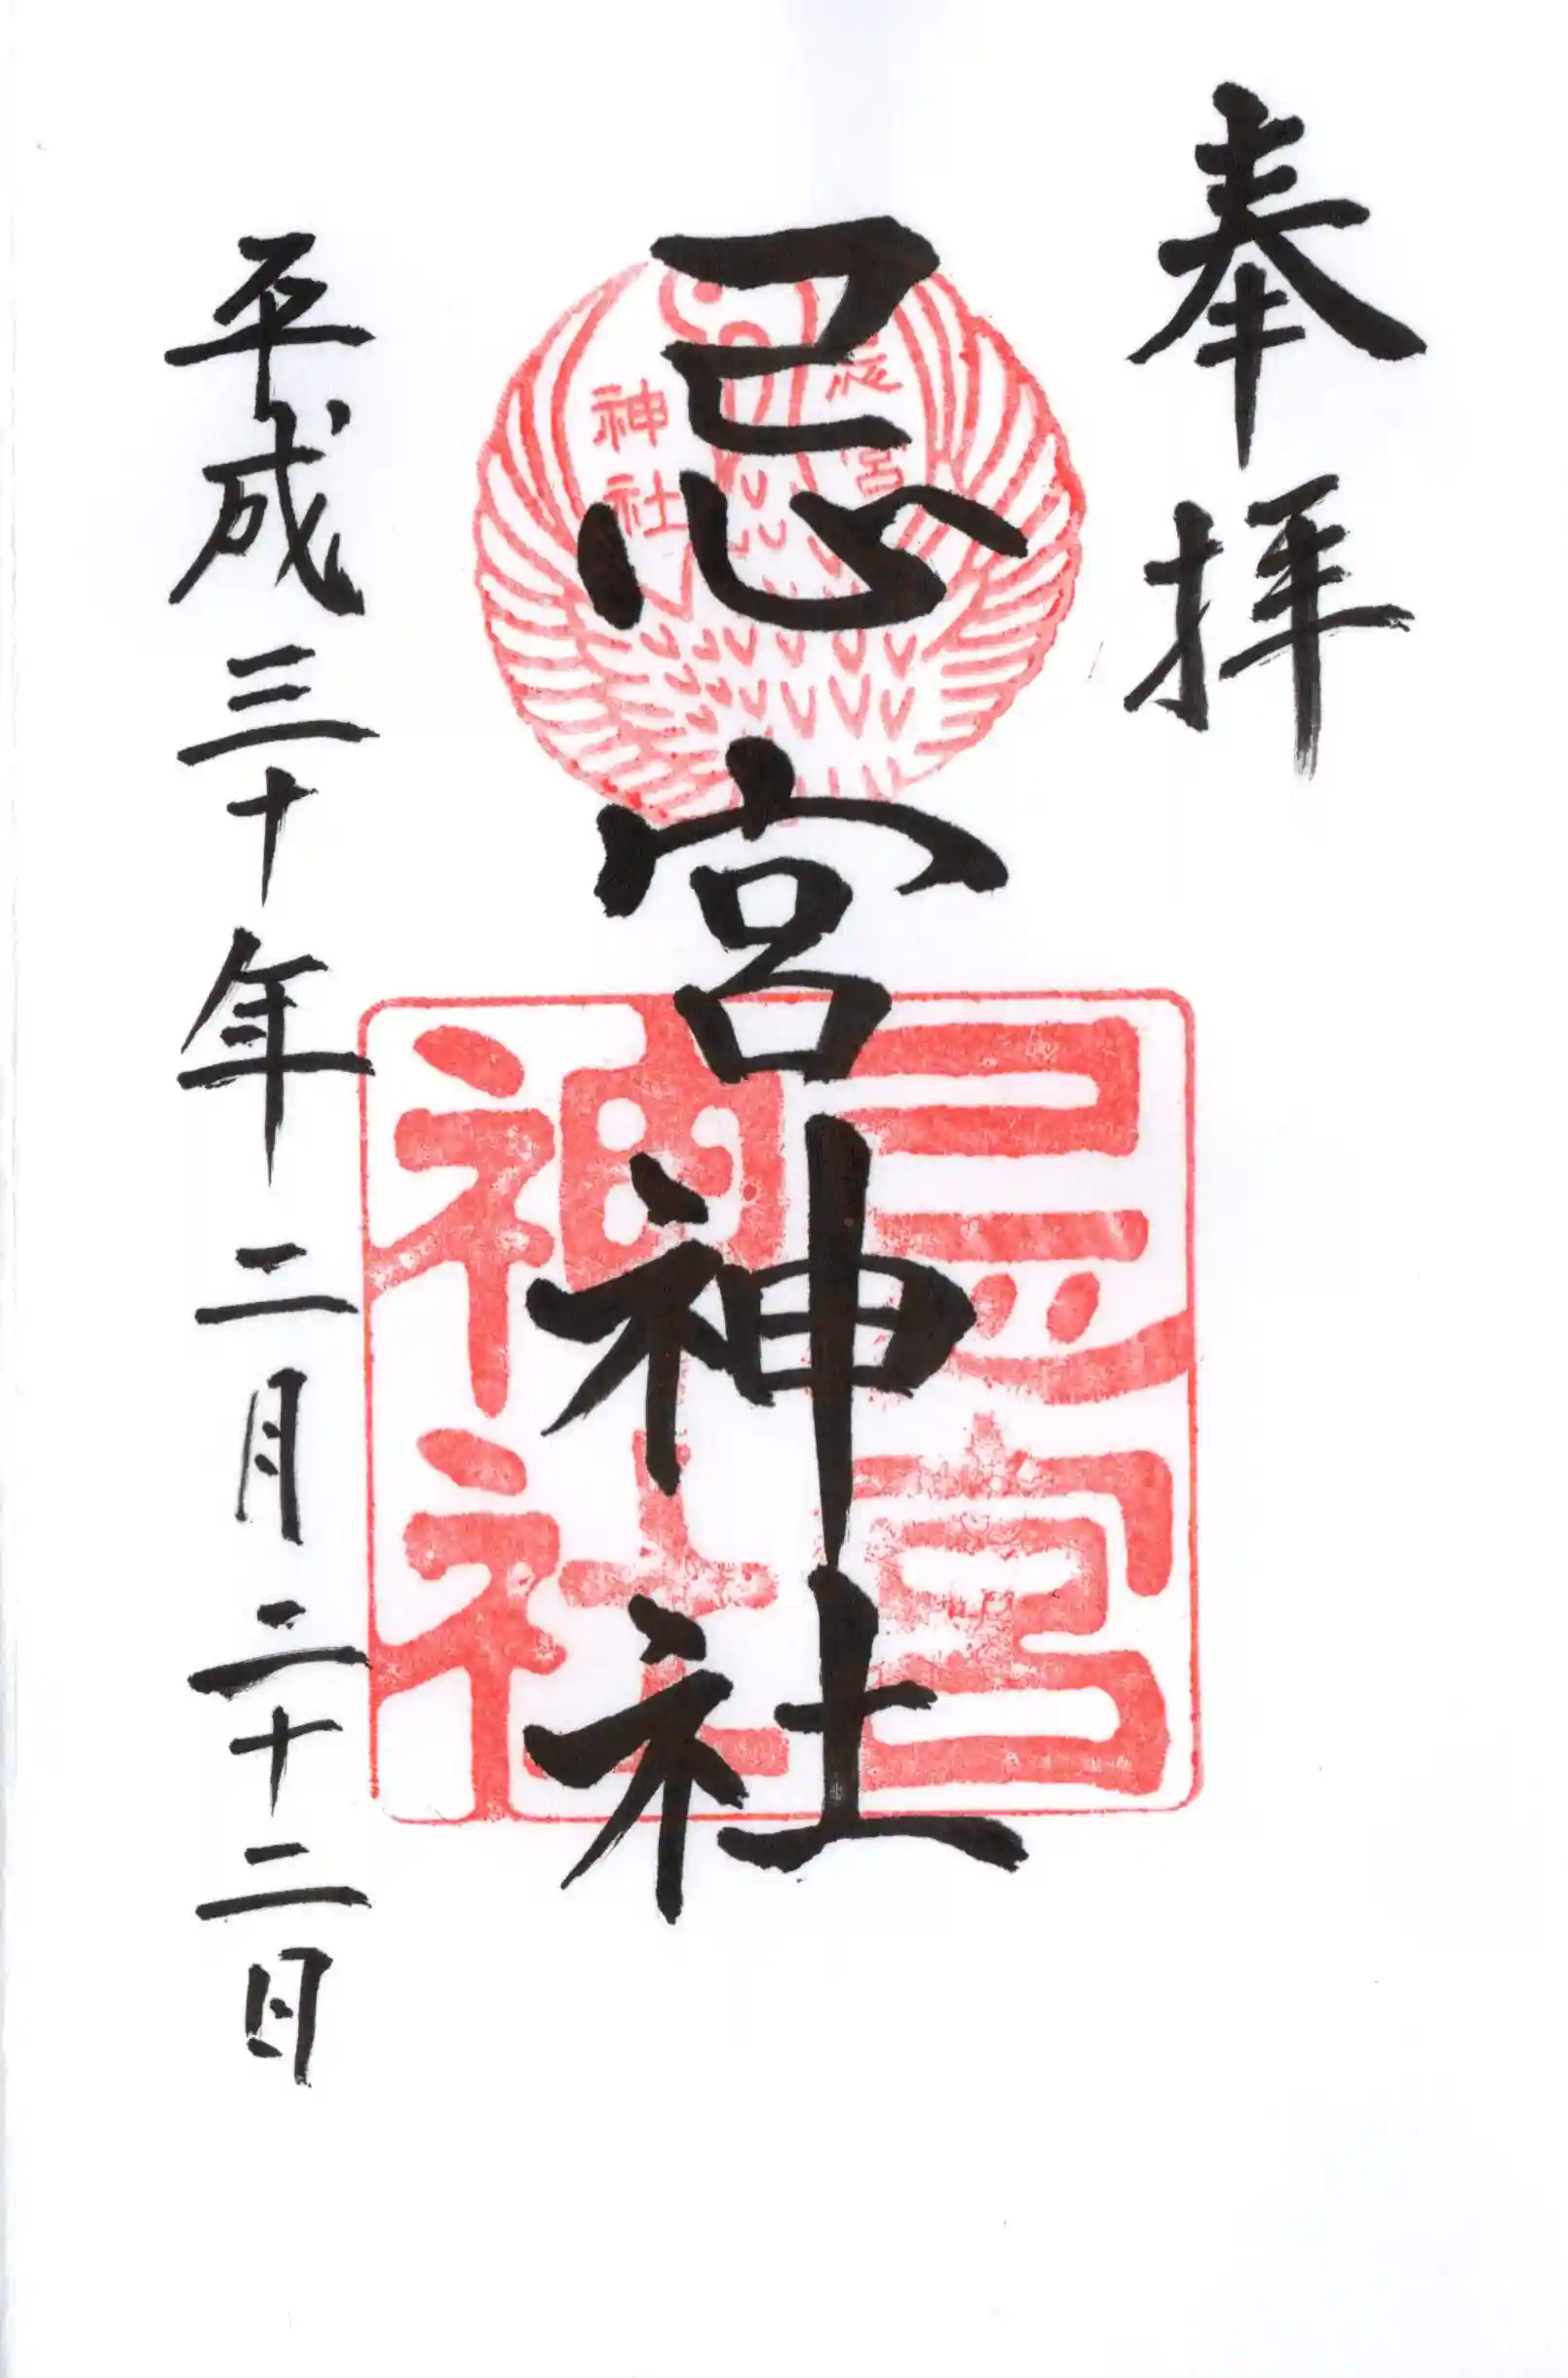 奉拝
忌宮神社
平成三十年二月二十二日
忌宮
神社
忌宮
神社